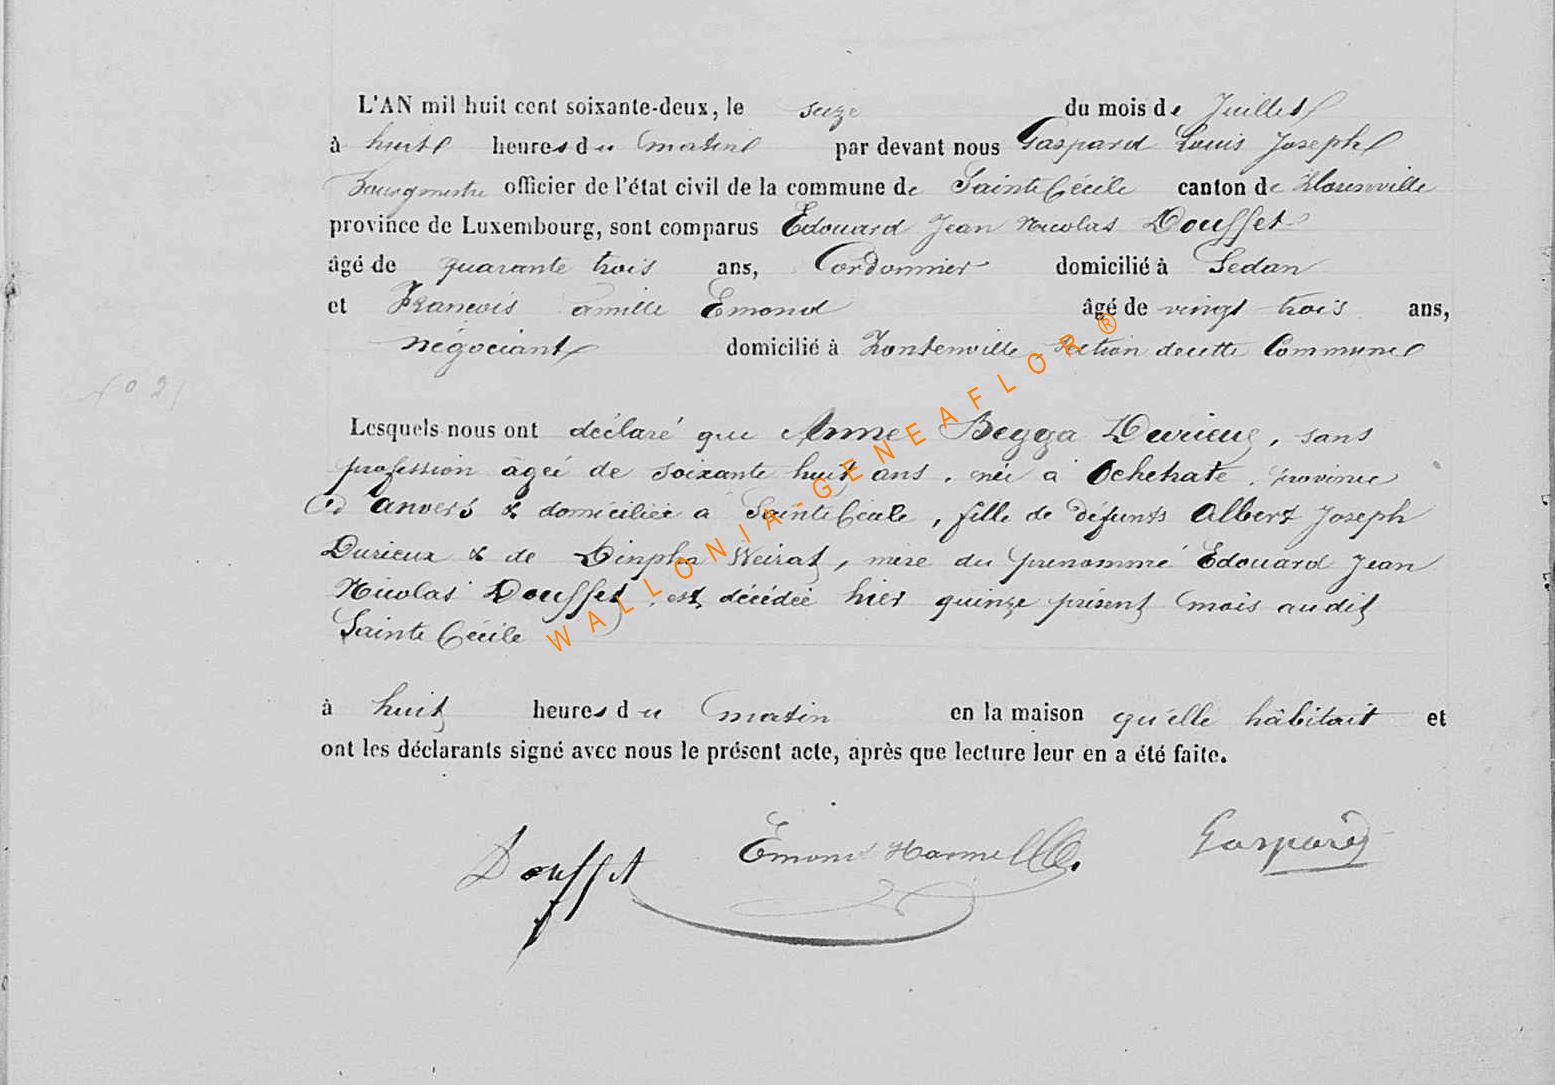 L'AN mil huit cent soixante-deux, le seize du mois de Juillet
à huit heures du matin par devant nous Gaspard Louis Joseph
Bourgmestre officier de l'état civil de la commune de Sainte Cécile canton de Florenville
province de Luxembourg, sont comparus Edouard Jean Nicolas Douffet
âgé de quarante trois ans, Cordonnier domicilié à Sedan
et François Camille Emond âgé de vingt trois ans,
négociant domicilié à Fontenoille section de cette Commune
N° 21
Lesquels nous ont déclaré que Anne Begga Durieux, sans
profession âgée de soixante huit ans, née à province
d'anvers & domiciliée à Sainte Cécile, fille de défunts Albert Joseph
Durieux & de Dinpha Weirat, mère du prénommé Edouard Jean
Nicolas Douffet, est décédée hier quinze présent mois audit
Sainte Cécile
à huit heures du matin en la maison qu'elle habitait et
ont les déclarants signé avec nous le présent acte, après que lecture leur en a été faite.
Douffet Emond Gaspard
WALLONIA-GENEAFLOR®